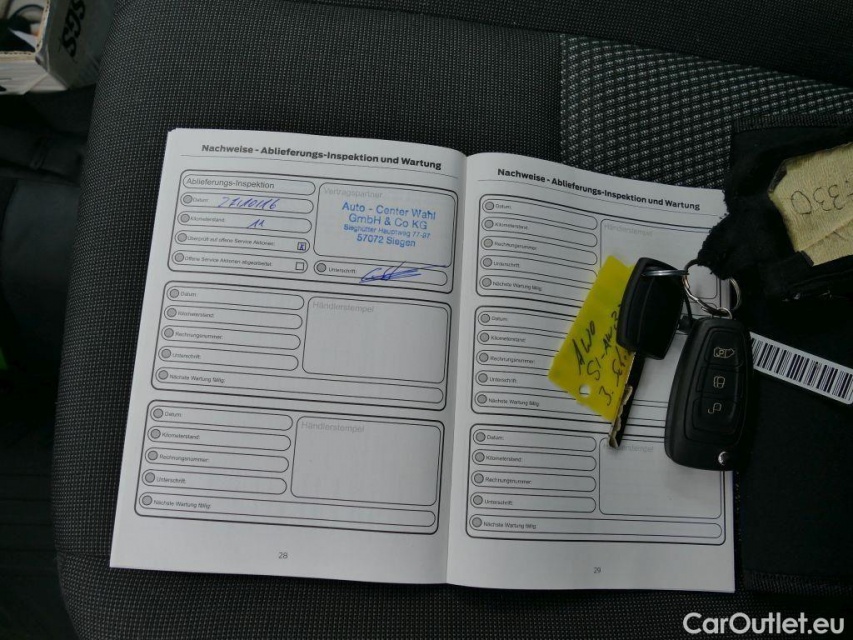 SGS
Nachweise - Ablieferungs-Inspektion und Wartung
Ablieferungs-Inspektion
Datum: 27/10/16
Kilometerstand: 11
Überprüft auf offene Service Aktionen: x
Offene Service Aktionen abgearbeitet:
Vertragspartner
Auto - Center Wahl
GmbH & Co KG
57072 Siegen
Unterschrift:
Datum:
Kilometerstand:
Rechnungsnummer:
Unterschrift:
Nächste Wartung fällig:
Händlerstempel
Datum:
Kilometerstand:
Rechnungsnummer:
Unterschrift:
Nächste Wartung fällig:
Händlerstempel
28
Nachweise - Ablieferungs-Inspektion und Wartung
Datum:
Kilometerstand:
Rechnungsnummer:
Unterschrift:
Nächste Wartung fällig:
Datum:
Kilometerstand:
Rechnungsnummer:
Unterschrift:
Nächste Wartung fällig:
Datum:
Kilometerstand:
Rechnungsnummer:
Unterschrift:
Nächste Wartung fällig:
29
CarOutlet.eu